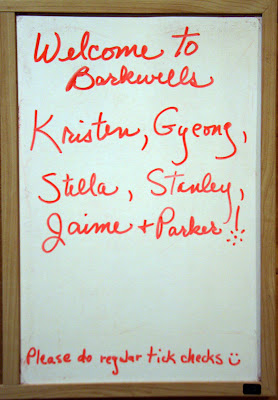 Welcome to
Barkwells
Kristen, Gyeong,
Stella, Stanley,
Jaime + Parker!
Please do regular tick checks ☺